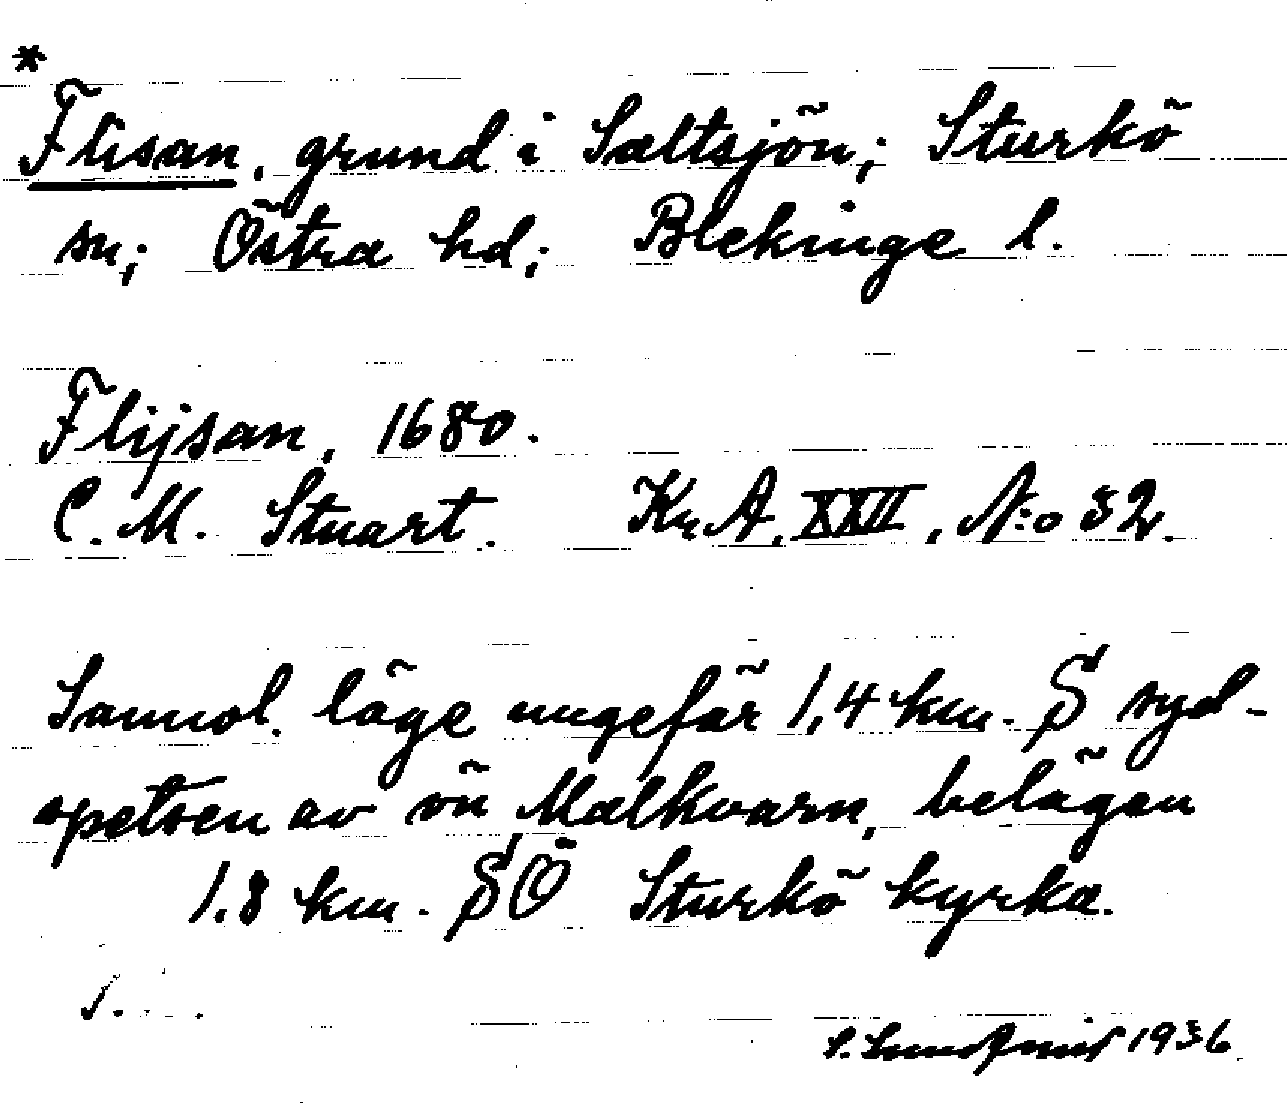 *
Flisan, grund i Saltsjön; Sturkö
sn; Östra hd; Blekinge l.
Flijsan, 1680.
C. M. Stuart. Kr A. XXII, N:o 32.
Sannol. läge ungefär 1,4 km. S syd-
spetsen av ön Malkvarn, belägen
1.8 km. SÖ Sturkö kyrka.
S. Lundqvist 1936